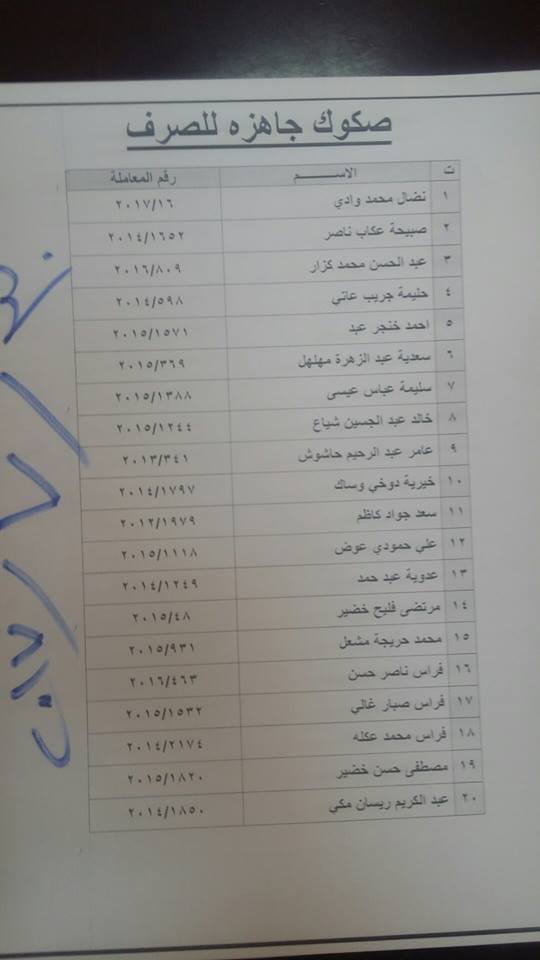 صكوك جاهزه للصرف
ت الاســـــم رقم المعاملة
١ نضال محمد وادي ٢٠١٧/١٦
٢ صبيحة عكاب ناصر ٢٠١٤/١٦٥٢
٣ عبد الحسن محمد كزار ٢٠١٦/٨٠٩
٤ حليمة جريب عاتي ٢٠١٤/٥٩٨
٥ احمد خنجر عبد ٢٠١٥/١٥٧١
٦ سعدية عبد الزهرة مهلهل ٢٠١٥/٣٦٩
٧ سليمة عباس عيسى ٢٠١٥/١٣٨٨
٨ خالد عبد الحسين شياع ٢٠١٥/١٢٤٤
٩ عامر عبد الرحيم حاشوش ٢٠١٣/٣٤١
١٠ خيرية دوخي وساك ٢٠١٤/١٧٩٧
١١ سعد جواد كاظم ٢٠١٢/١٩٧٩
١٢ علي حمودي عوض ٢٠١٥/١١١٨
١٣ عدوية عبد حمد ٢٠١٤/١٢٤٩
١٤ مرتضى فليح خضير ٢٠١٥/٤٨
١٥ محمد حريجة مشعل ٢٠١٥/٩٣١
١٦ فراس ناصر حسن ٢٠١٦/٤٦٣
١٧ فراس صبار غالي ٢٠١٥/١٥٣٢
١٨ فراس محمد عكله ٢٠١٤/٢١٧٤
١٩ مصطفى حسن خضير ٢٠١٥/١٨٢٠
٢٠ عبد الكريم ريسان مكي ٢٠١٤/١٨٥٠